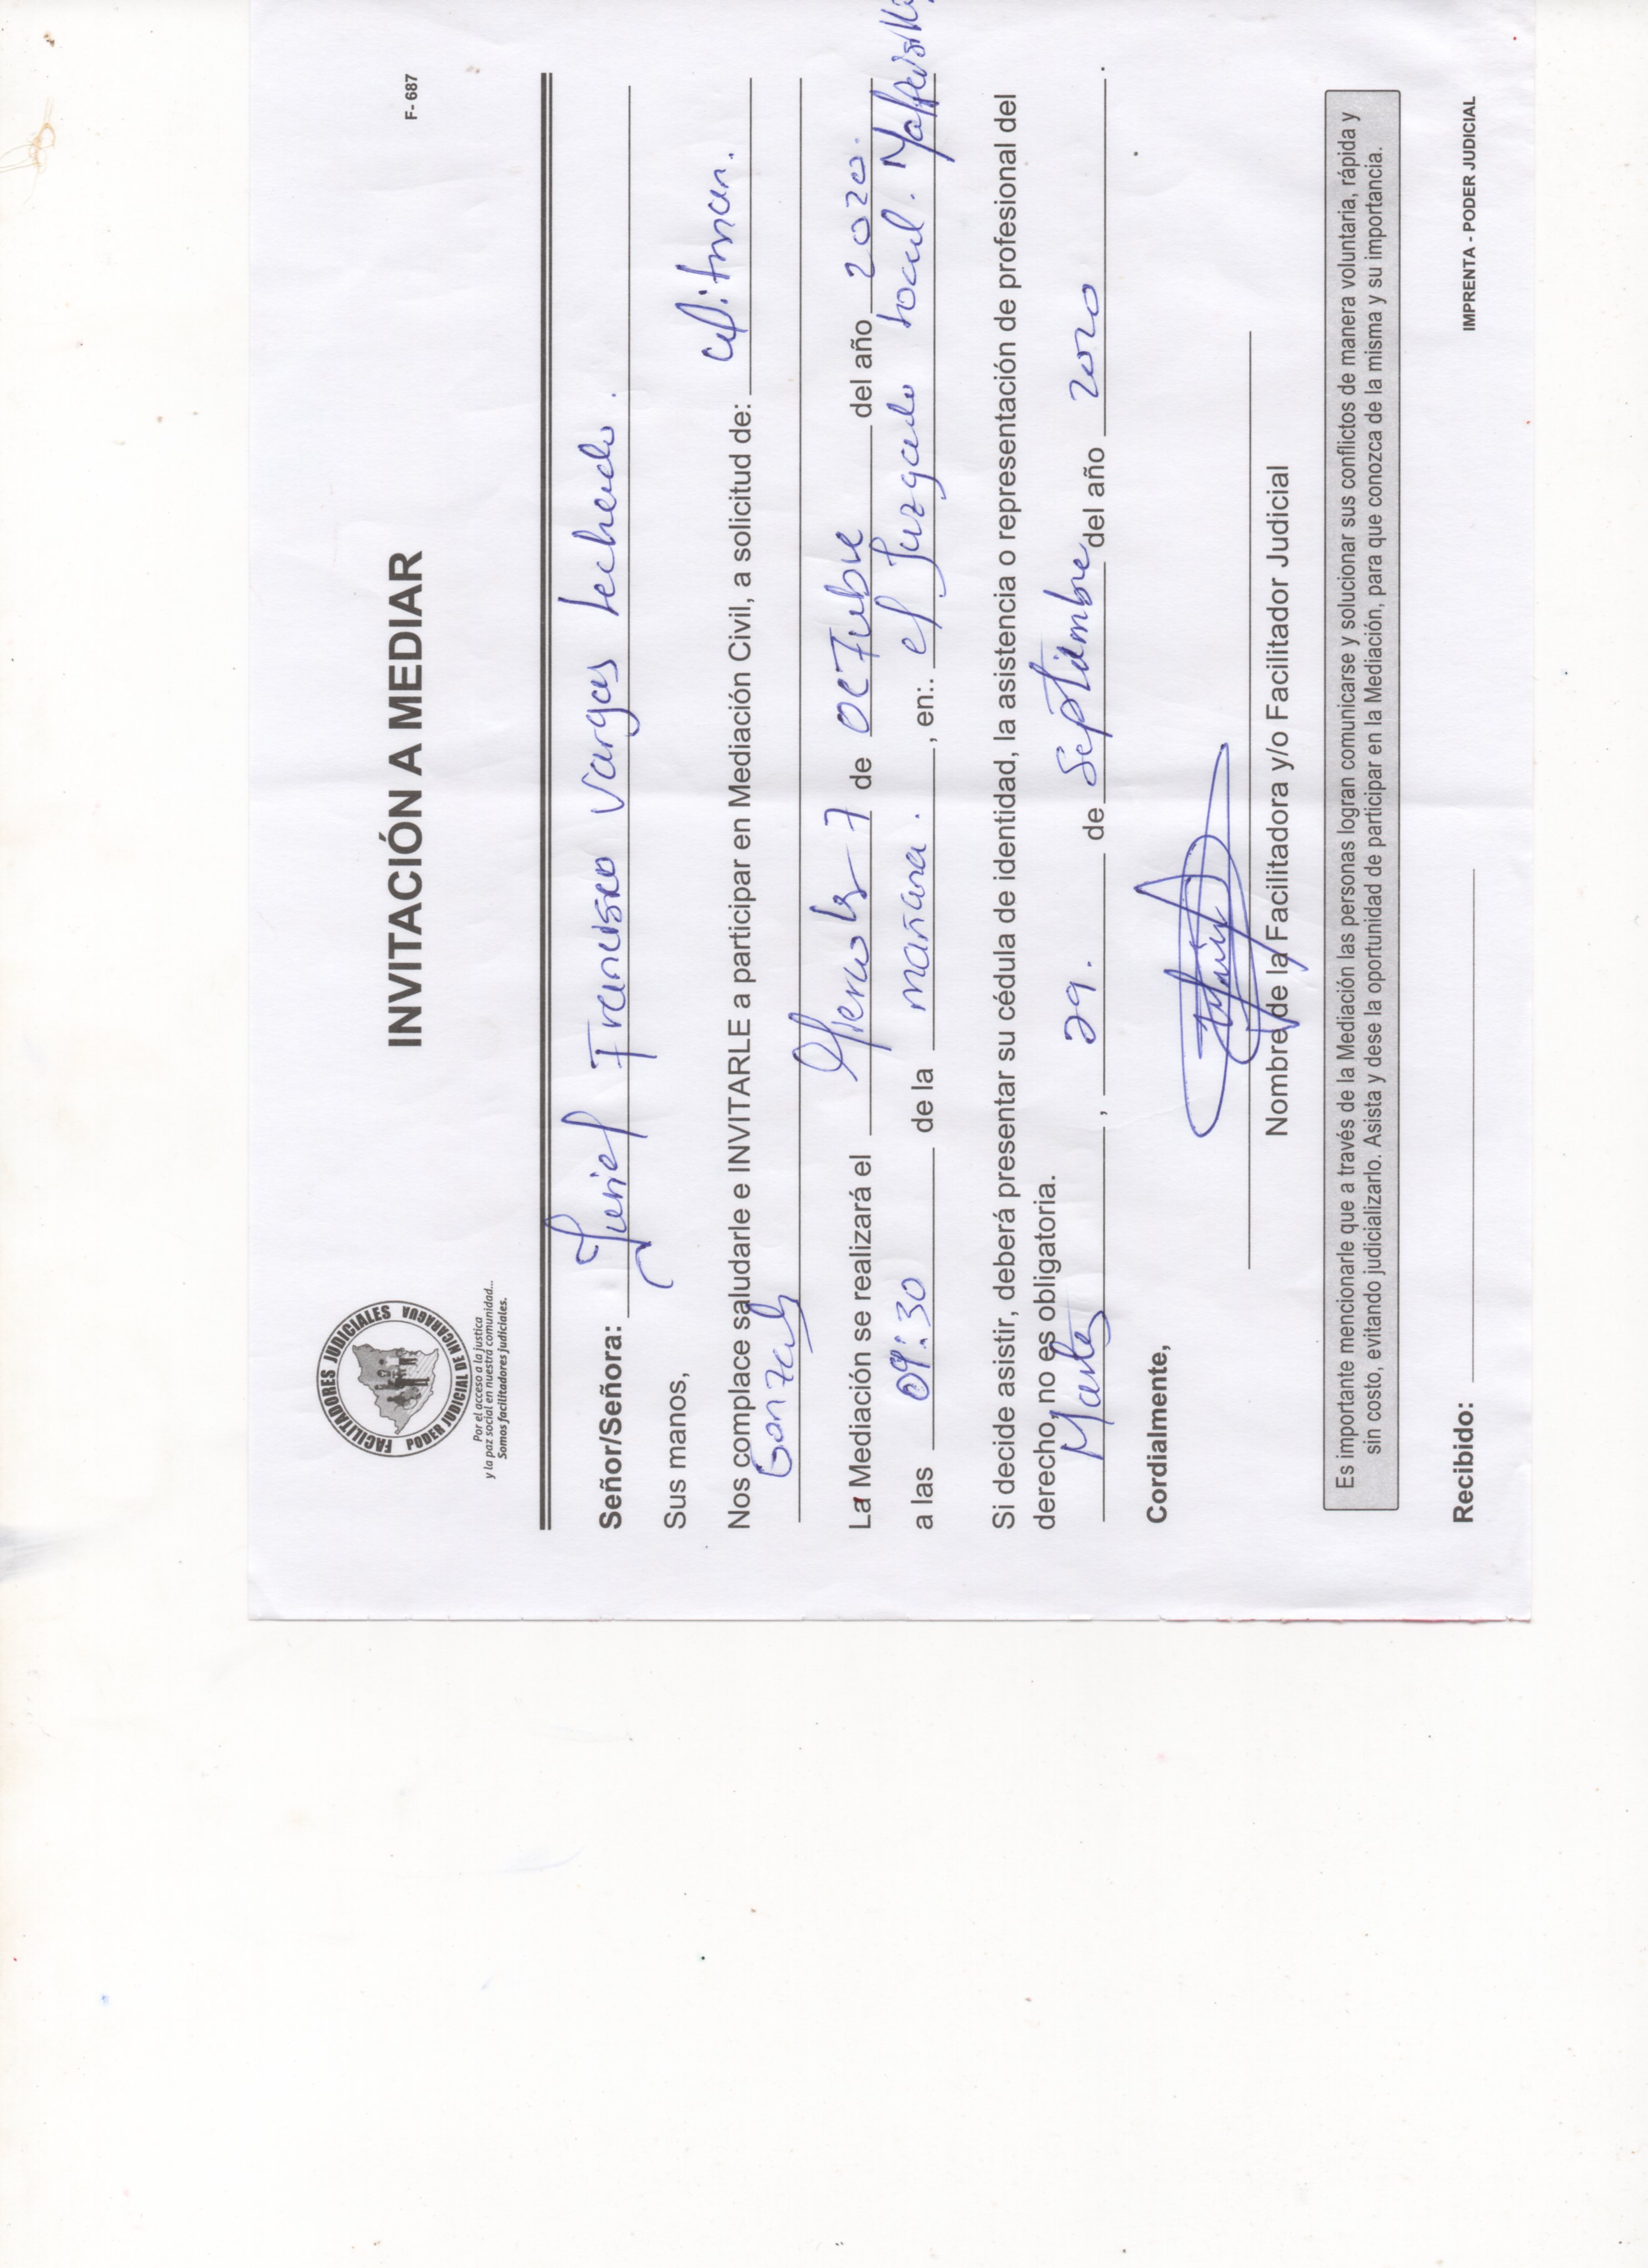 FACILITADORES JUDICIALES
PODER JUDICIAL DE NICARAGUA
Por el acceso a la justica
y la paz social en nuestra comunidad...
Somos facilitadores judiciales.
INVITACIÓN A MEDIAR
F- 687
Señor/Señora: Francisco Vargas
Sus manos,
Nos complace saludarle e INVITARLE a participar en Mediación Civil, a solicitud de:
La Mediación se realizará el 7 de OCTUBRE del año 2020.
a las 09:30 de la mañana. , en:. el Juzgado local.
Si decide asistir, deberá presentar su cédula de identidad, la asistencia o representación de profesional del
derecho, no es obligatoria.
Martes , 29. de Septiembre del año 2020 .
Cordialmente,
Nombre de la Facilitadora y/o Facilitador Judicial
Es importante mencionarle que a través de la Mediación las personas logran comunicarse y solucionar sus conflictos de manera voluntaria, rápida y
sin costo, evitando judicializarlo. Asista y dese la oportunidad de participar en la Mediación, para que conozca de la misma y su importancia.
Recibido:
IMPRENTA - PODER JUDICIAL